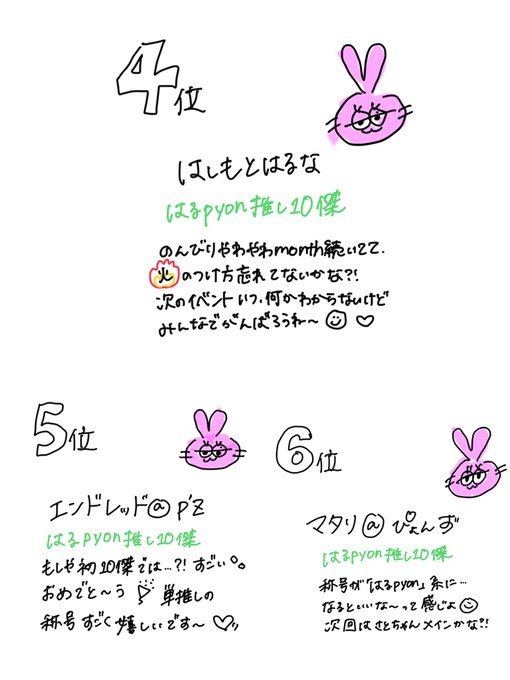 4位
はしもとはるな
はるpyon推し10傑
のんびりやわやわmonth続いてて、
火のつけ方忘れてないかな?!
次のイベントいつ、何かわからないけど
みんなでがんばろうね〜
5位
エンドレッド@p'z
はるpyon推し10傑
もしや初10傑では…?! すごい。
おめでと〜う 単推しの
称号すごく嬉しいです〜
6位
マタリ@ぴょんず
はるpyon推し10傑
称号が「はるpyon」系に…
なるといいな〜って感じよ
次回はさとちゃんメインかな?!